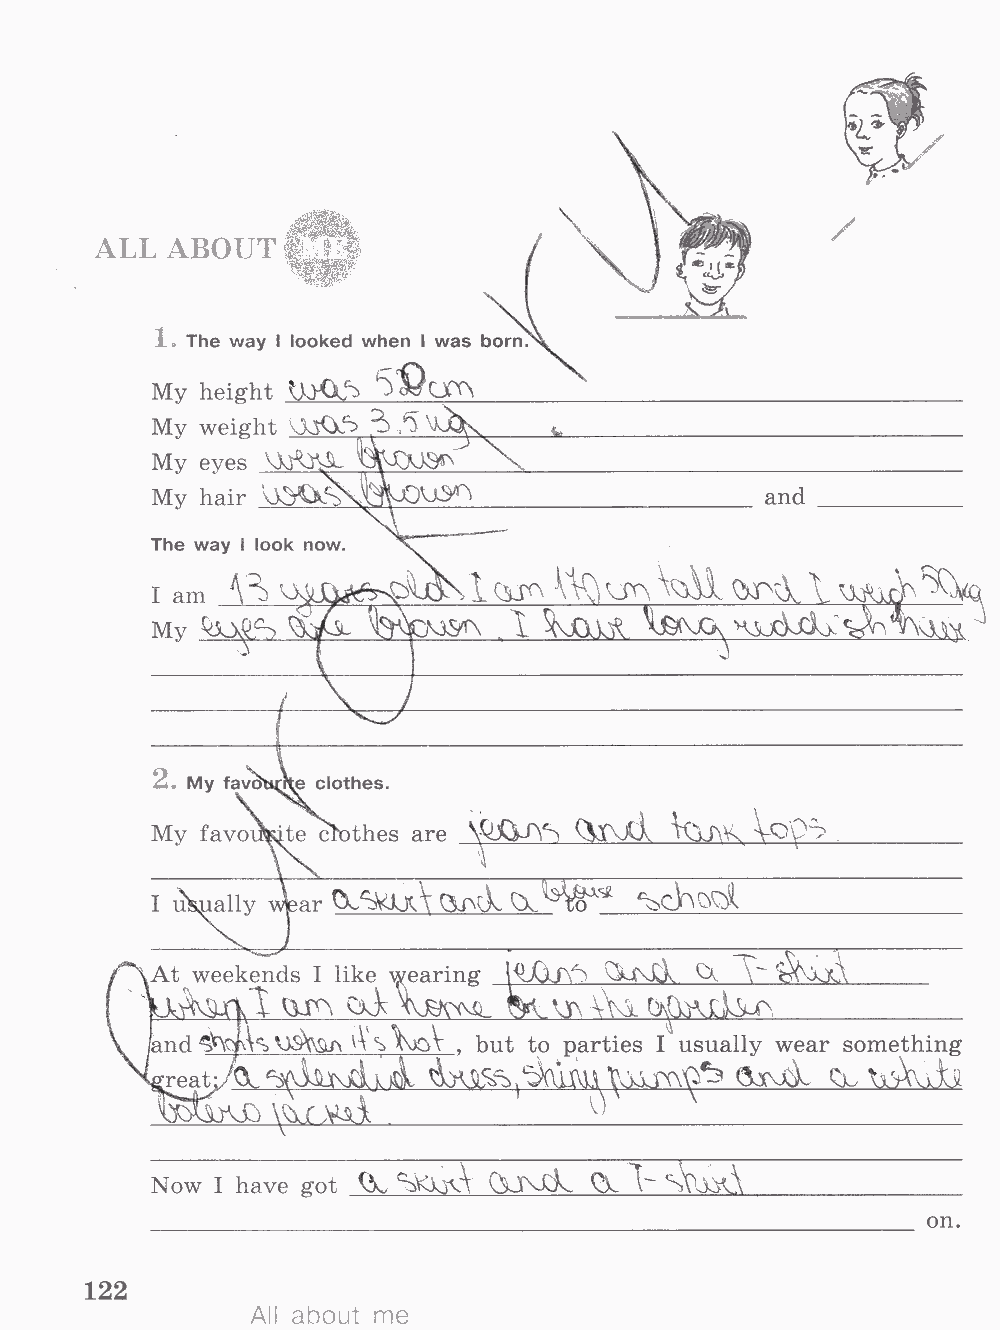 ALL ABOUT ME
1. The way I looked when I was born.
My height was 50cm
My weight was 3.5 kg
My eyes were brown
My hair was brown and
The way I look now.
I am 13 years old. I am 170cm tall and I weigh 50kg
My eyes are brown. I have long reddish hair
2. My favourite clothes.
My favourite clothes are jeans and tank tops
I usually wear a skirt and a blouse to school
At weekends I like wearing jeans and a T-shirt
when I am at home or in the garden
and shorts when it's hot, but to parties I usually wear something
great; a splendid dress, shiny pumps and a white
bolero jacket.
Now I have got a skirt and a T-shirt
on.
122
All about me